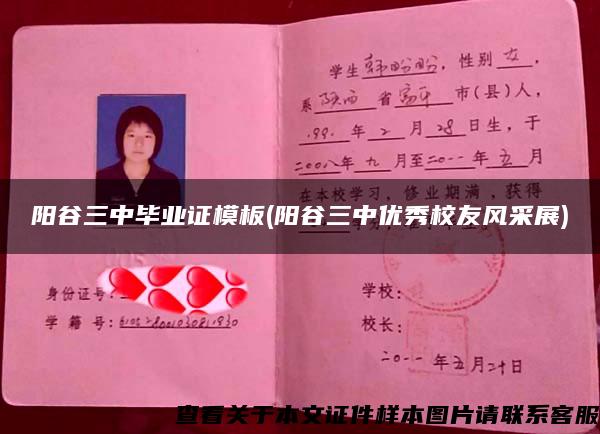 学生韩盼盼，性别女，
系陕西省富平市(县)人，
1991年2月28日生，于
二00八年九月至二0一一年五月
在本校学习，修业期满，获得
阳谷三中毕业证模板(阳谷三中优秀校友风采展)
身份证号：
学籍号：
学校：
校长：
二0一一年五月二十日
查看关于本文证件样本图片请联系客服